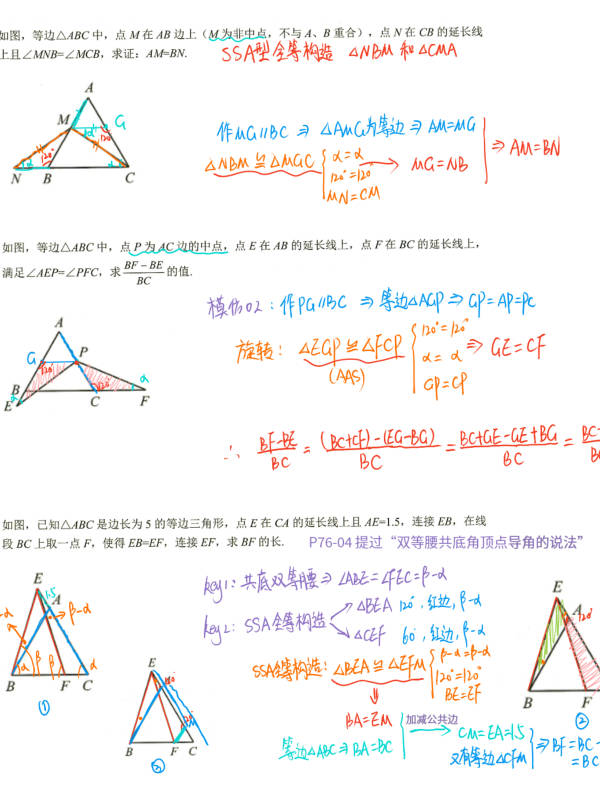 如图，等边△ABC 中，点 M 在 AB 边上（M 为非中点，不与 A、B 重合），点 N 在 CB 的延长线
上且∠MNB=∠MCB，求证：AM=BN.
SSA型全等构造 △NBM 和 △CMA
A
M
G
120°
120°
α
α
N
B
C
作MG∥BC ⇒ △AMG为等边 ⇒ AM=MG
△NBM ≌ △MGC
α=α
120°=120°
MN=CM
→ MG=NB
⇒ AM=BN
如图，等边△ABC 中，点 P 为 AC 边的中点，点 E 在 AB 的延长线上，点 F 在 BC 的延长线上，
满足∠AEP=∠PFC，求 (BF－BE)/BC 的值.
模仿02：作PG∥BC ⇒ 等边△AGP ⇒ GP=AP=PC
A
G
P
120°
120°
α
α
B
E
C
F
旋转：△EGP ≌ △FCP
(AAS)
120°=120°
α=α
GP=CP
⇒ GE=CF
∴ (BF-BE)/BC = ((BC+CF)-(EG-BG))/BC = (BC+GE-GE+BG)/BC =
如图，已知△ABC 是边长为 5 的等边三角形，点 E 在 CA 的延长线上且 AE=1.5，连接 EB，在线
段 BC 上取一点 F，使得 EB=EF，连接 EF，求 BF 的长.
P76-04 提过“双等腰共底角顶点导角的说法”
key1：共底双等腰 ⇒ ∠ABE=∠FEC=β-α
key2：SSA全等构造
△BEA 120°，红边，β-α
△CEF 60°，红边，β-α
SSA全等构造：△BEA ≌ △EFM
β-α=β-α
120°=120°
BE=EF
BA=EM
等边△ABC ⇒ BA=BC
加减公共边
CM=EA=1.5
又有等边△CFM
⇒ BF=BC-
=BC
E
1.5
A
β-α
α
β
β
α
B
F
C
①
E
B
F
C
E
A
120°
B
F
②